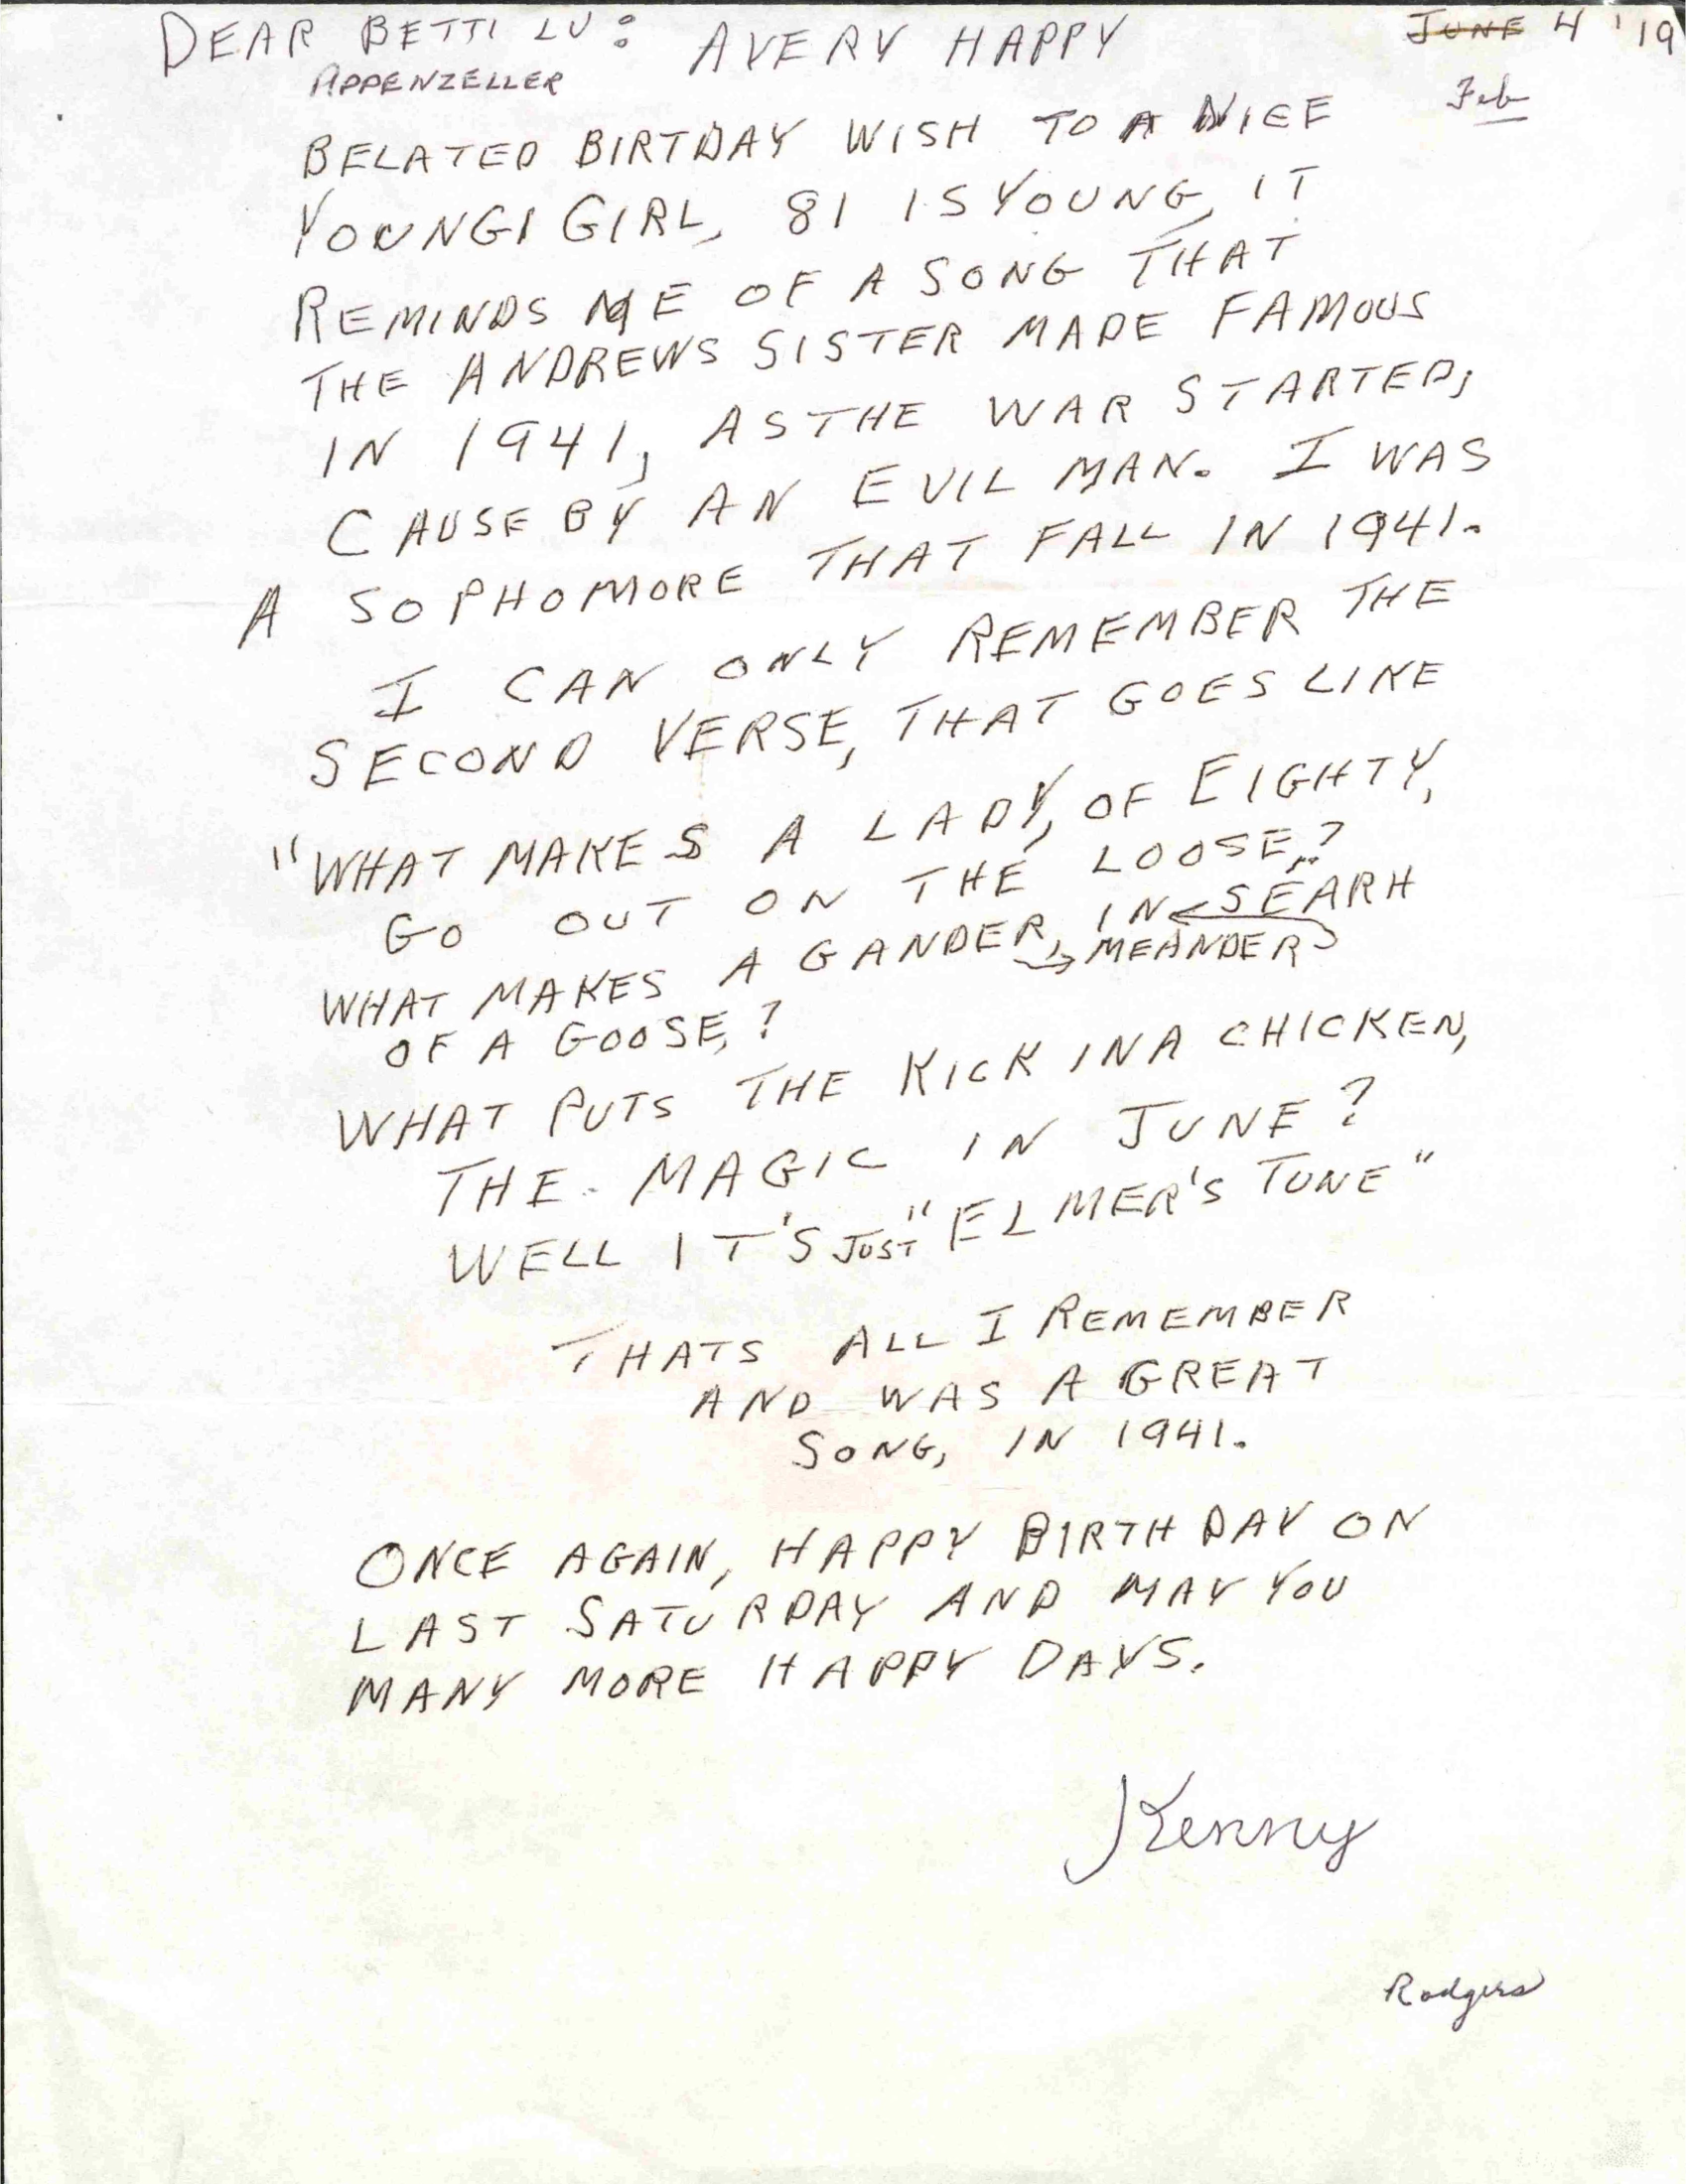 DEAR BETTI LU: A VERY HAPPY JUNE 4 '19
APPENZELLER
Feb
BELATED BIRTDAY WISH TO A NICE
YOUNG GIRL, 81 IS YOUNG, IT
REMINDS ME OF A SONG THAT
THE ANDREWS SISTER MADE FAMOUS
IN 1941, AS THE WAR STARTED;
CAUSE BY AN EVIL MAN. I WAS
A SOPHOMORE THAT FALL IN 1941.
I CAN ONLY REMEMBER THE
SECOND VERSE, THAT GOES LIKE
"WHAT MAKES A LADY, OF EIGHTY,
GO OUT ON THE LOOSE,?
WHAT MAKES A GANDER, MEANDER IN SEARH
OF A GOOSE,?
WHAT PUTS THE KICK IN A CHICKEN,
THE MAGIC IN JUNE?
WELL IT'S JUST "ELMER'S TUNE"
THATS ALL I REMEMBER
AND WAS A GREAT
SONG, IN 1941.
ONCE AGAIN, HAPPY BIRTHDAY ON
LAST SATURDAY AND MAY YOU
MANY MORE HAPPY DAYS.
Kenny
Rodgers